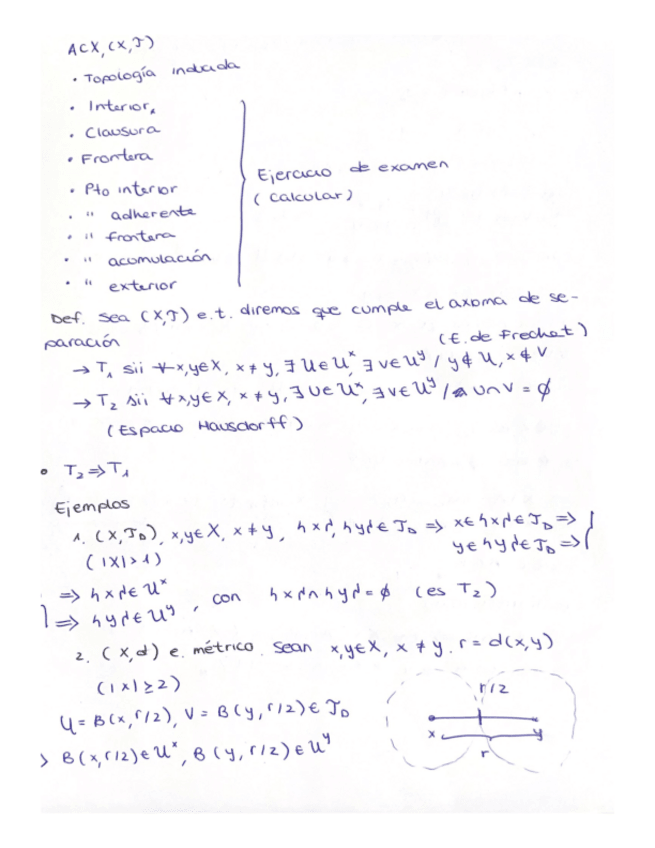 A⊂X, (X,T)
· Topología inducida
· Interior,
· Clausura
· Frontera
· Pto interior
· " adherente
· " frontera
· " acumulación
· " exterior
Ejercicio de examen
(Calcular)
Def. Sea (X,T) e.t. diremos que cumple el axioma de se-
paración
(E. de Frechet)
→ T₁ sii ∀x,y∈X, x≠y, ∃U∈U^x, ∃V∈U^y / y∉U, x∉V
→ T₂ sii ∀x,y∈X, x≠y, ∃U∈U^x, ∃V∈U^y / U∩V = ∅
(Espacio Hausdorff)
• T₂⇒T₁
Ejemplos
1. (X,T_D), x,y∈X, x≠y, {x}, {y}∈T_D ⇒ x∈{x}∈T_D ⇒
y∈{y}∈T_D ⇒
(|X|>1)
⇒ {x}∈U^x
⇒ {y}∈U^y, con {x}∩{y}=∅ (es T₂)
2. (X,d) e. métrico. Sean x,y∈X, x≠y. r=d(x,y)
(|X|≥2)
U=B(x,r/2), V=B(y,r/2)∈T_D
> B(x,r/2)∈U^x, B(y,r/2)∈U^y
r/2
x y
r